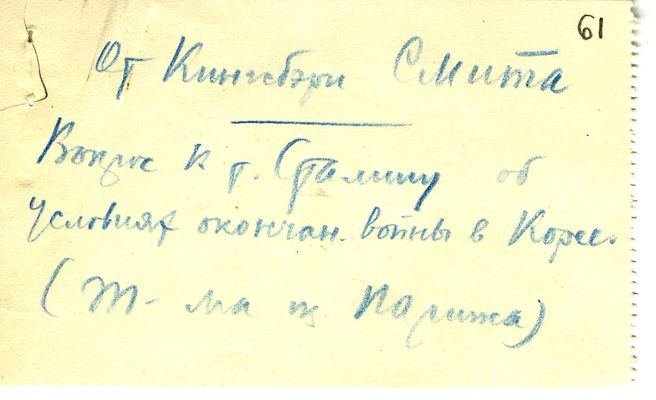 61
От Кингсбэри Смита
Вопрос к т. Сталину об
условиях окончан. войны в Корее.
(Т-ма из Парижа)